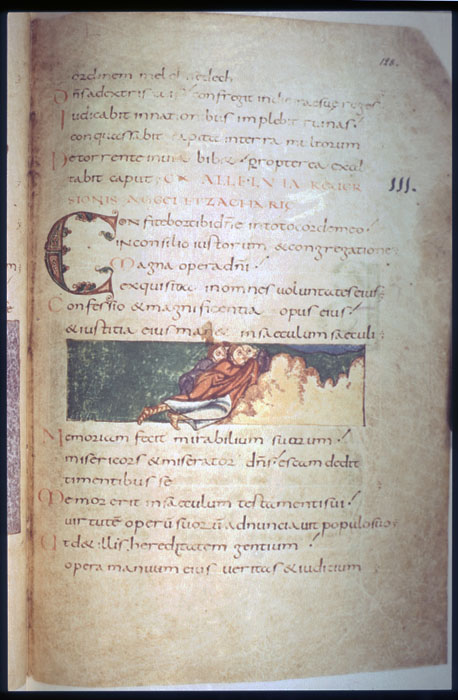 128.
ordinem melchisedech
Dn̄s a dextris tuis confregit in die irae suae reges
Iudicabit in nationibus implebit ruinas
conquassabit capita in terra multorum
De torrente in via bibet propterea exal
tabit caput CX ALLELUIA REUER
SIONIS AGGEI ET ZACHARIE III.
Confitebor tibi dn̄e in toto corde meo
in consilio iustorum & congregatione
Magna opera dn̄i
exquisita in omnes voluntates eius
Confessio & magnificentia opus eius
& iustitia eius man& in saeculum saeculi
Memoriam fecit mirabilium suorum
misericors & miserator dn̄s escam dedit
timentibus se
Memor erit in saeculum testamenti sui
virtutē operū suorū adnunciavit populo suo
Ut d& illis hereditatem gentium
opera manuum eius veritas & iudicium